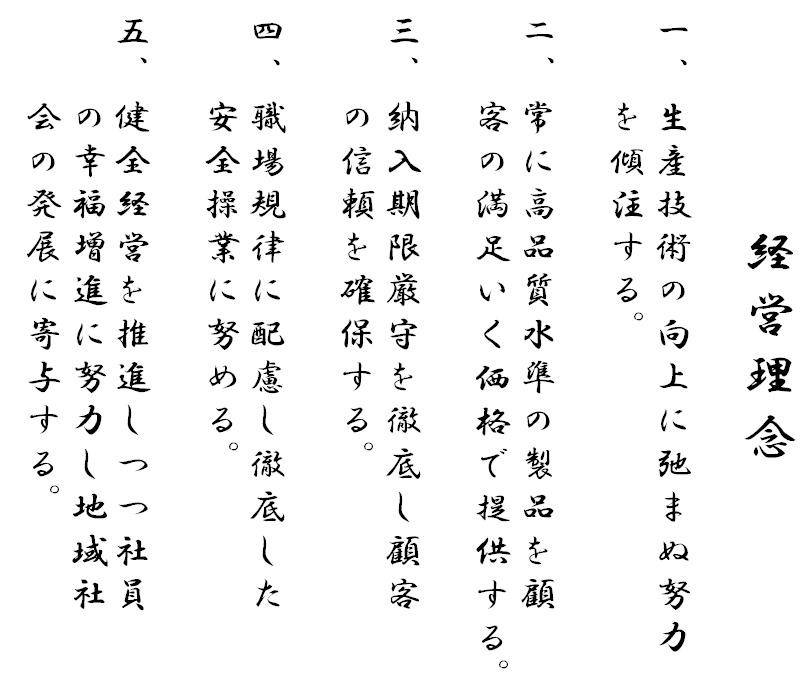 経営理念
一、生産技術の向上に弛まぬ努力
を傾注する。
二、常に高品質水準の製品を顧
客の満足いく価格で提供する。
三、納入期限厳守を徹底し顧客
の信頼を確保する。
四、職場規律に配慮し徹底した
安全操業に努める。
五、健全経営を推進しつつ社員
の幸福増進に努力し地域社
会の発展に寄与する。